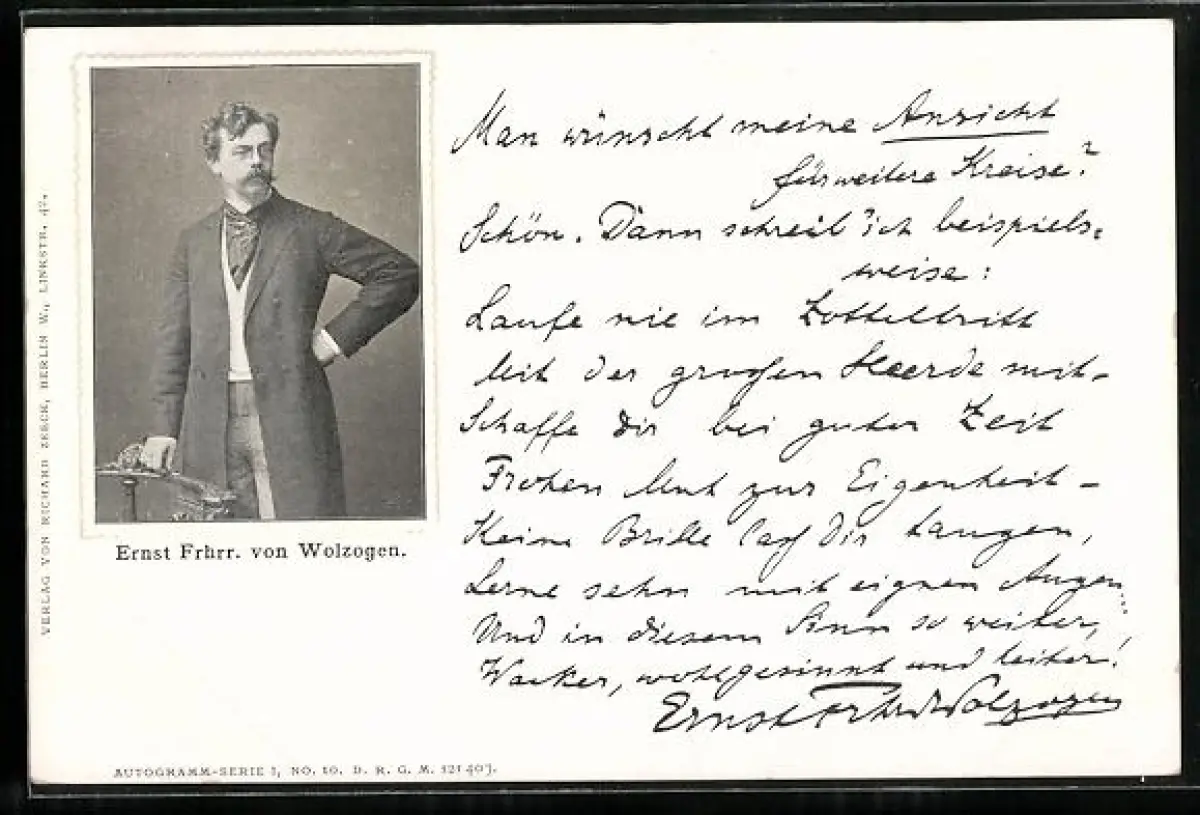 VERLAG VON RICHARD ZEECK, BERLIN W., LINKSTR. 42.
Ernst Frhrr. von Wolzogen.
Man wünscht meine Ansicht
für weitere Kreise?
Schön. Dann schreib' ich beispiels-
weise:
Laufe nie im Zotteltritt
Mit der großen Heerde mit-
Schaffe Dir bei guter Zeit
Frohen Mut zur Eigenheit-
Keine Brille laß Dir taugen,
Lerne sehn mit eignen Augen...
Und in diesem Sinn so weiter,
Wacker, wohlgesinnt und heiter!
Ernst Frhr v Wolzogen
AUTOGRAMM-SERIE I, NO. 10. D. R. G. M.